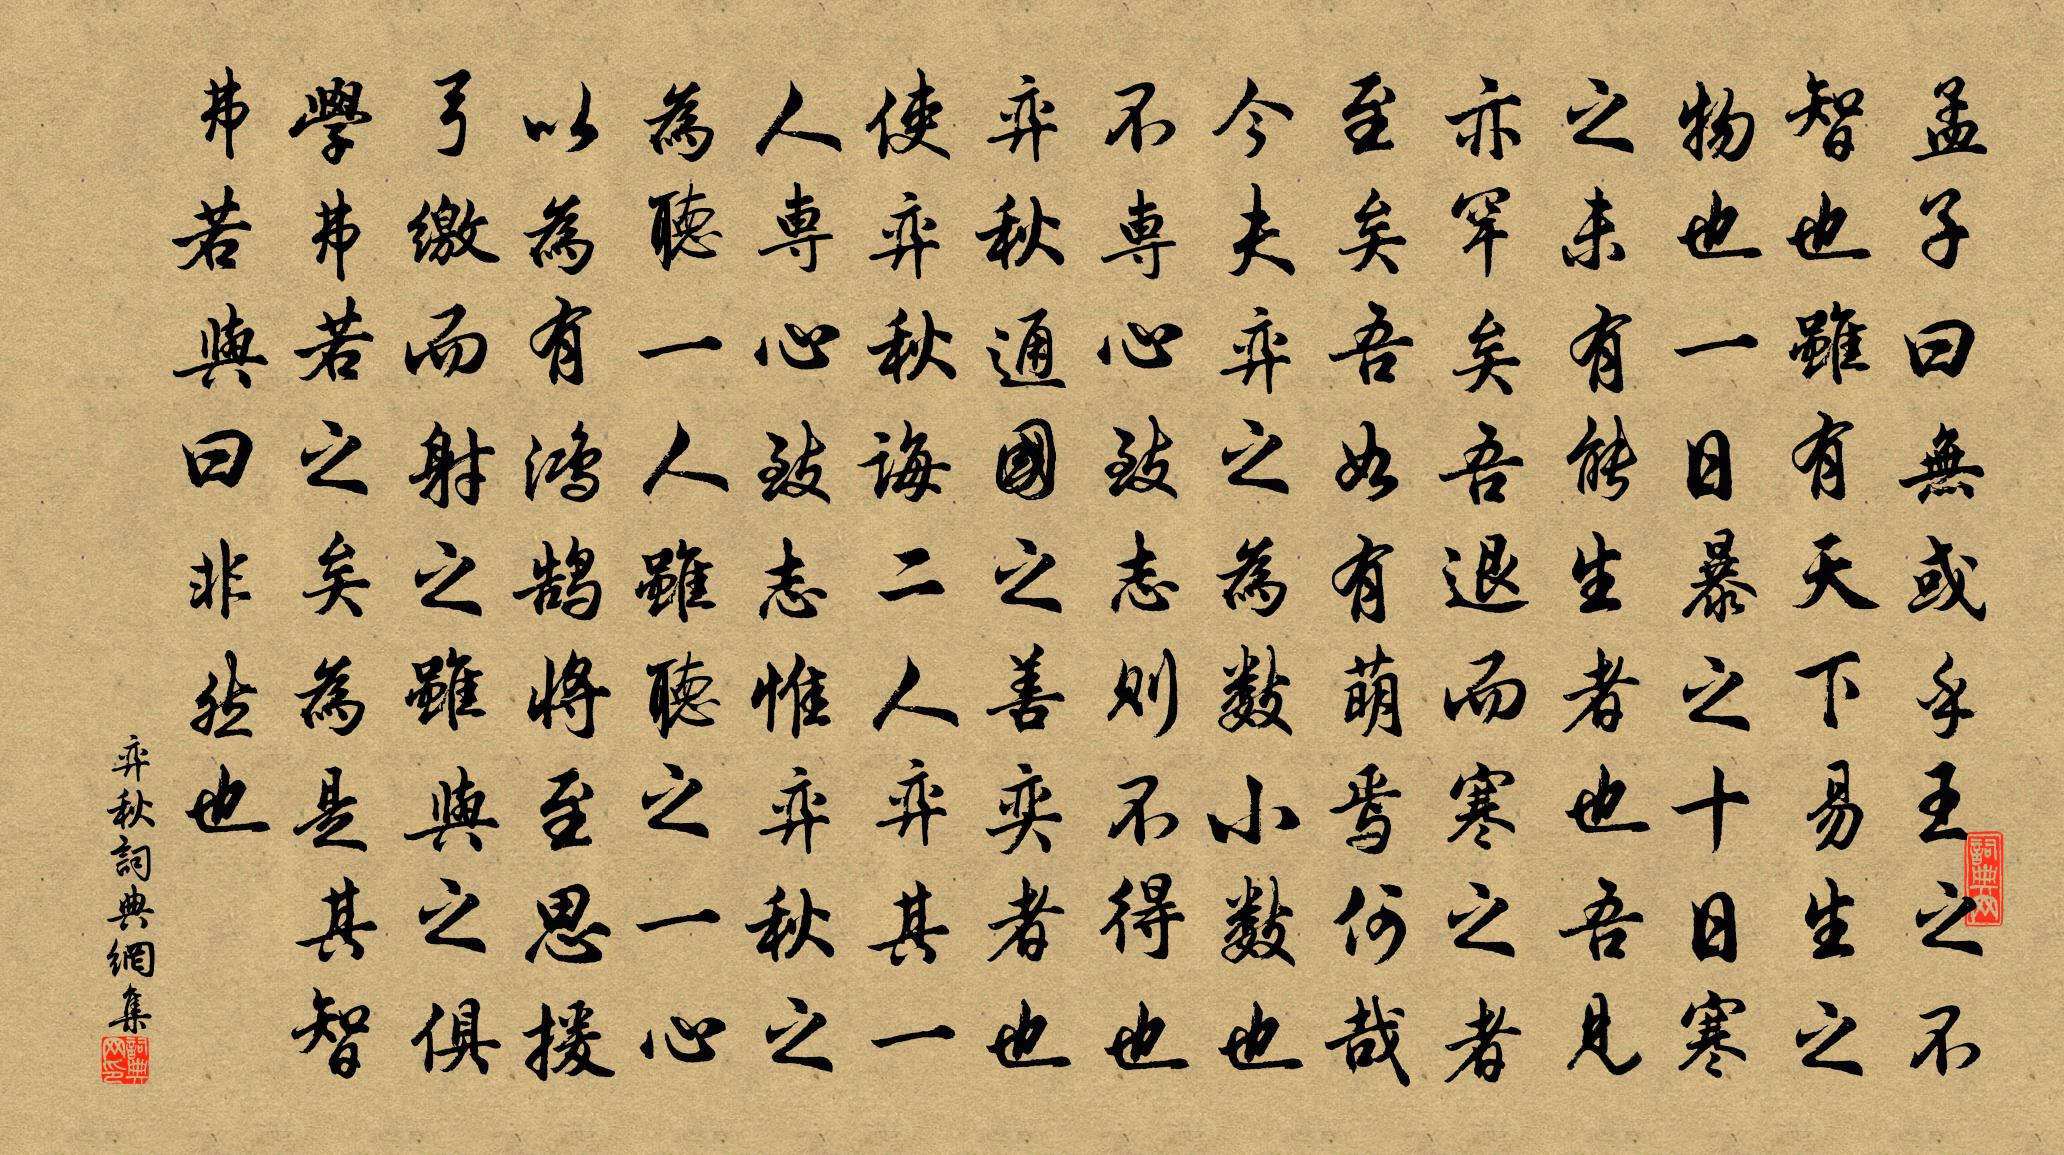 孟子曰無或乎王之不
智也雖有天下易生之
物也一日暴之十日寒
之未有能生者也吾見
亦罕矣吾退而寒之者
至矣吾如有萌焉何哉
今夫弈之為數小數也
不専心致志則不得也
弈秋通國之善奕者也
使弈秋誨二人弈其一
人専心致志惟弈秋之
為聽一人雖聽之一心
以為有鴻鵠將至思援
弓繳而射之雖與之俱
學弗若之矣為是其智
弗若與曰非然也
弈秋詞典網集
詞典网
詞典网印